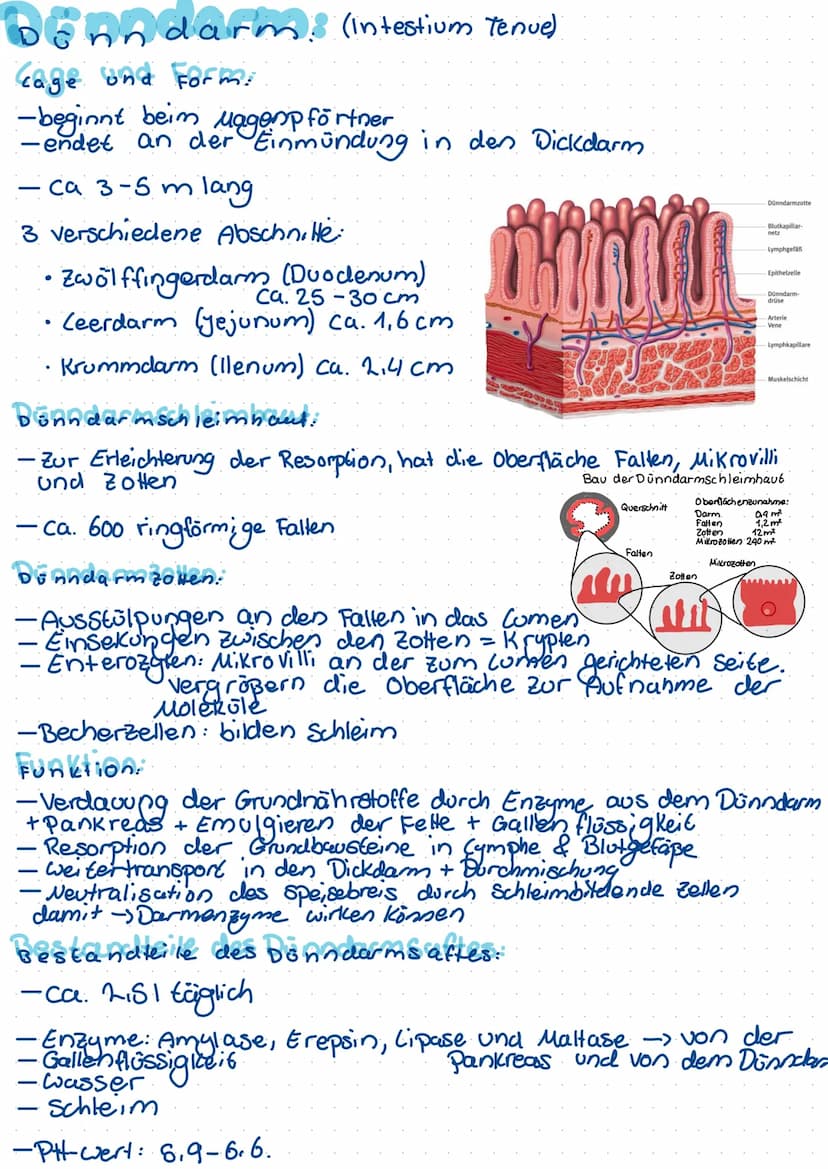 Dünndarm: (Intestium Tenue)
Lage und Form:
—beginnt beim Magenpförtner
—endet an der Einmündung in den Dickdarm
— Ca 3-5 m lang
3 verschiedene Abschnitte:
• Zwölffingerdarm (Duodenum)
Ca. 25-30 cm
• Leerdarm (Jejunum) Ca. 1,6 cm
• Krummdarm (Ilenum) Ca. 2,4 cm
Dünndarmzotte
Blutkapillar-
netz
Lymphgefäß
Epithelzelle
Dünndarm-
drüse
Arterie
Vene
Lymphkapillare
Muskelschicht
Dünndarmschleimhaut:
— Zur Erleichterung der Resorption, hat die Oberfläche Falten, Mikrovilli
und Zotten
— ca. 600 ringförmige Falten
Bau der Dünndarmschleimhaut
Querschnitt
Oberflächenzunahme:
Darm 0,4 m²
Falten 1,2 m²
Zotten 12 m²
Mikrozotten 240 m²
Falten
Zotten
Microzotten
Dünndarmzotten:
— Ausstülpungen an den Falten in das Lumen
— Einsekungen zwischen den Zotten = Krypten
— Enterozyten: Mikrovilli an der zum Lumen gerichteten Seite.
vergrößern die Oberfläche zur Aufnahme der
Moleküle
—Becherzellen: bilden Schleim
Funktion:
—Verdauung der Grundnährstoffe durch Enzyme aus dem Dünndarm
+ Pankreas + Emulgieren der Fette + Gallenflüssigkeit
— Resorption der Grundbausteine in Lymphe & Blutgefäße
— Weitertransport in den Dickdarm + Durchmischung
— Neutralisation des Speisebreis durch Schleimbildende Zellen
damit → Darmenzyme wirken können
Bestandteile des Dünndarmsaftes:
—ca. 2,5 l täglich
— Enzyme: Amylase, Erepsin, Lipase und Maltase → von der
Pankreas und von dem Dünndar
— Gallenflüssigkeit
— Wasser
— Schleim
—PH-wert: 5,9-6.6.